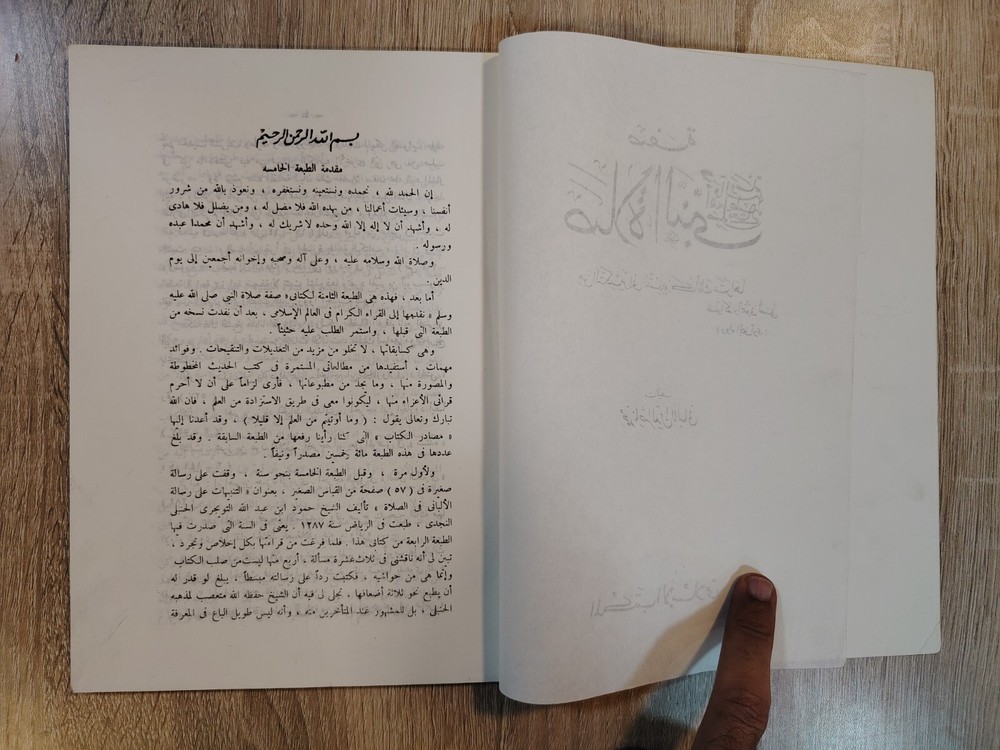 - ٤ -
بسم الله الرحمن الرحيم
مقدمة الطبعة الخامسه
إن الحمد لله ، نحمده ونستعينه ونستغفره ، ونعوذ بالله من شرور
أنفسنا ، وسيئات أعمالنا ، من يهده الله فلا مضل له ، ومن يضلل فلا هادى
له ، وأشهد أن لا إله إلا الله وحده لا شريك له ، وأشهد أن محمدا عبده
ورسوله .
وصلاة الله وسلامه عليه ، وعلى آله وصحبه وإخوانه أجمعين إلى يوم
الدين .
أما بعد ، فهذه هى الطبعة الثامنة لكتابى « صفة صلاة النبى صلى الله عليه
وسلم » نقدمها إلى القراء الكرام فى العالم الإسلامى ، بعد أن نفدت نسخه من
الطبعة التى قبلها ، واستمر الطلب عليه حثيثاً .
وهى كسابقاتها ، لا تخلو من مزيد من التعديلات والتنقيحات . وفوائد
مهمات ، أستفيدها من مطالعاتى المستمرة فى كتب الحديث المخطوطة
والمصورة منها ، وما يجد من مطبوعاتها ، فأرى لزاماً على أن لا أحرم
قرائى الأعزاء منها ، ليكونوا معى فى طريق الاستزادة من العلم ، فان الله
تبارك وتعالى يقول : ( وما أوتيتم من العلم إلا قليلا ) ، وقد أعدنا إليها
« مصادر الكتاب » التى كنا رأينا رفعها من الطبعة السابقة . وقد بلغ
عددها فى هذه الطبعة مائة وخمسين مصدراً ونيفاً .
ولأول مرة ، وقبل الطبعة الخامسة بنحو سنة ، وقفت على رسالة
صغيرة فى ( ٥٧ ) صفحة من القياس الصغير ، بعنوان « التنبيهات على رسالة
الألبانى فى الصلاة » تأليف الشيخ حمود ابن عبد الله التويجرى الحنبلى
النجدى ، طبعت فى الرياض سنة ١٢٨٧ . يعنى فى السنة التى صدرت فيها
الطبعة الرابعة من كتابى هذا . فلما فرغت من قراءتها بكل إخلاص وتجرد ،
تبين لى أنه ناقشنى فى ثلاث عشرة مسألة ، أربع منها ليست من صلب الكتاب
وإنما هى من حواشيه ، فكتبت رداً على رسالته مبسطاً ، يبلغ لو قدر له
أن يطبع نحو ثلاثة أضعافها ، تجلى لى فيه أن الشيخ حفظه الله متعصب لمذهبه
الحنبلى ، بل للمشهور عند المتأخرين منه ، وأنه ليس طويل الباع فى المعرفة